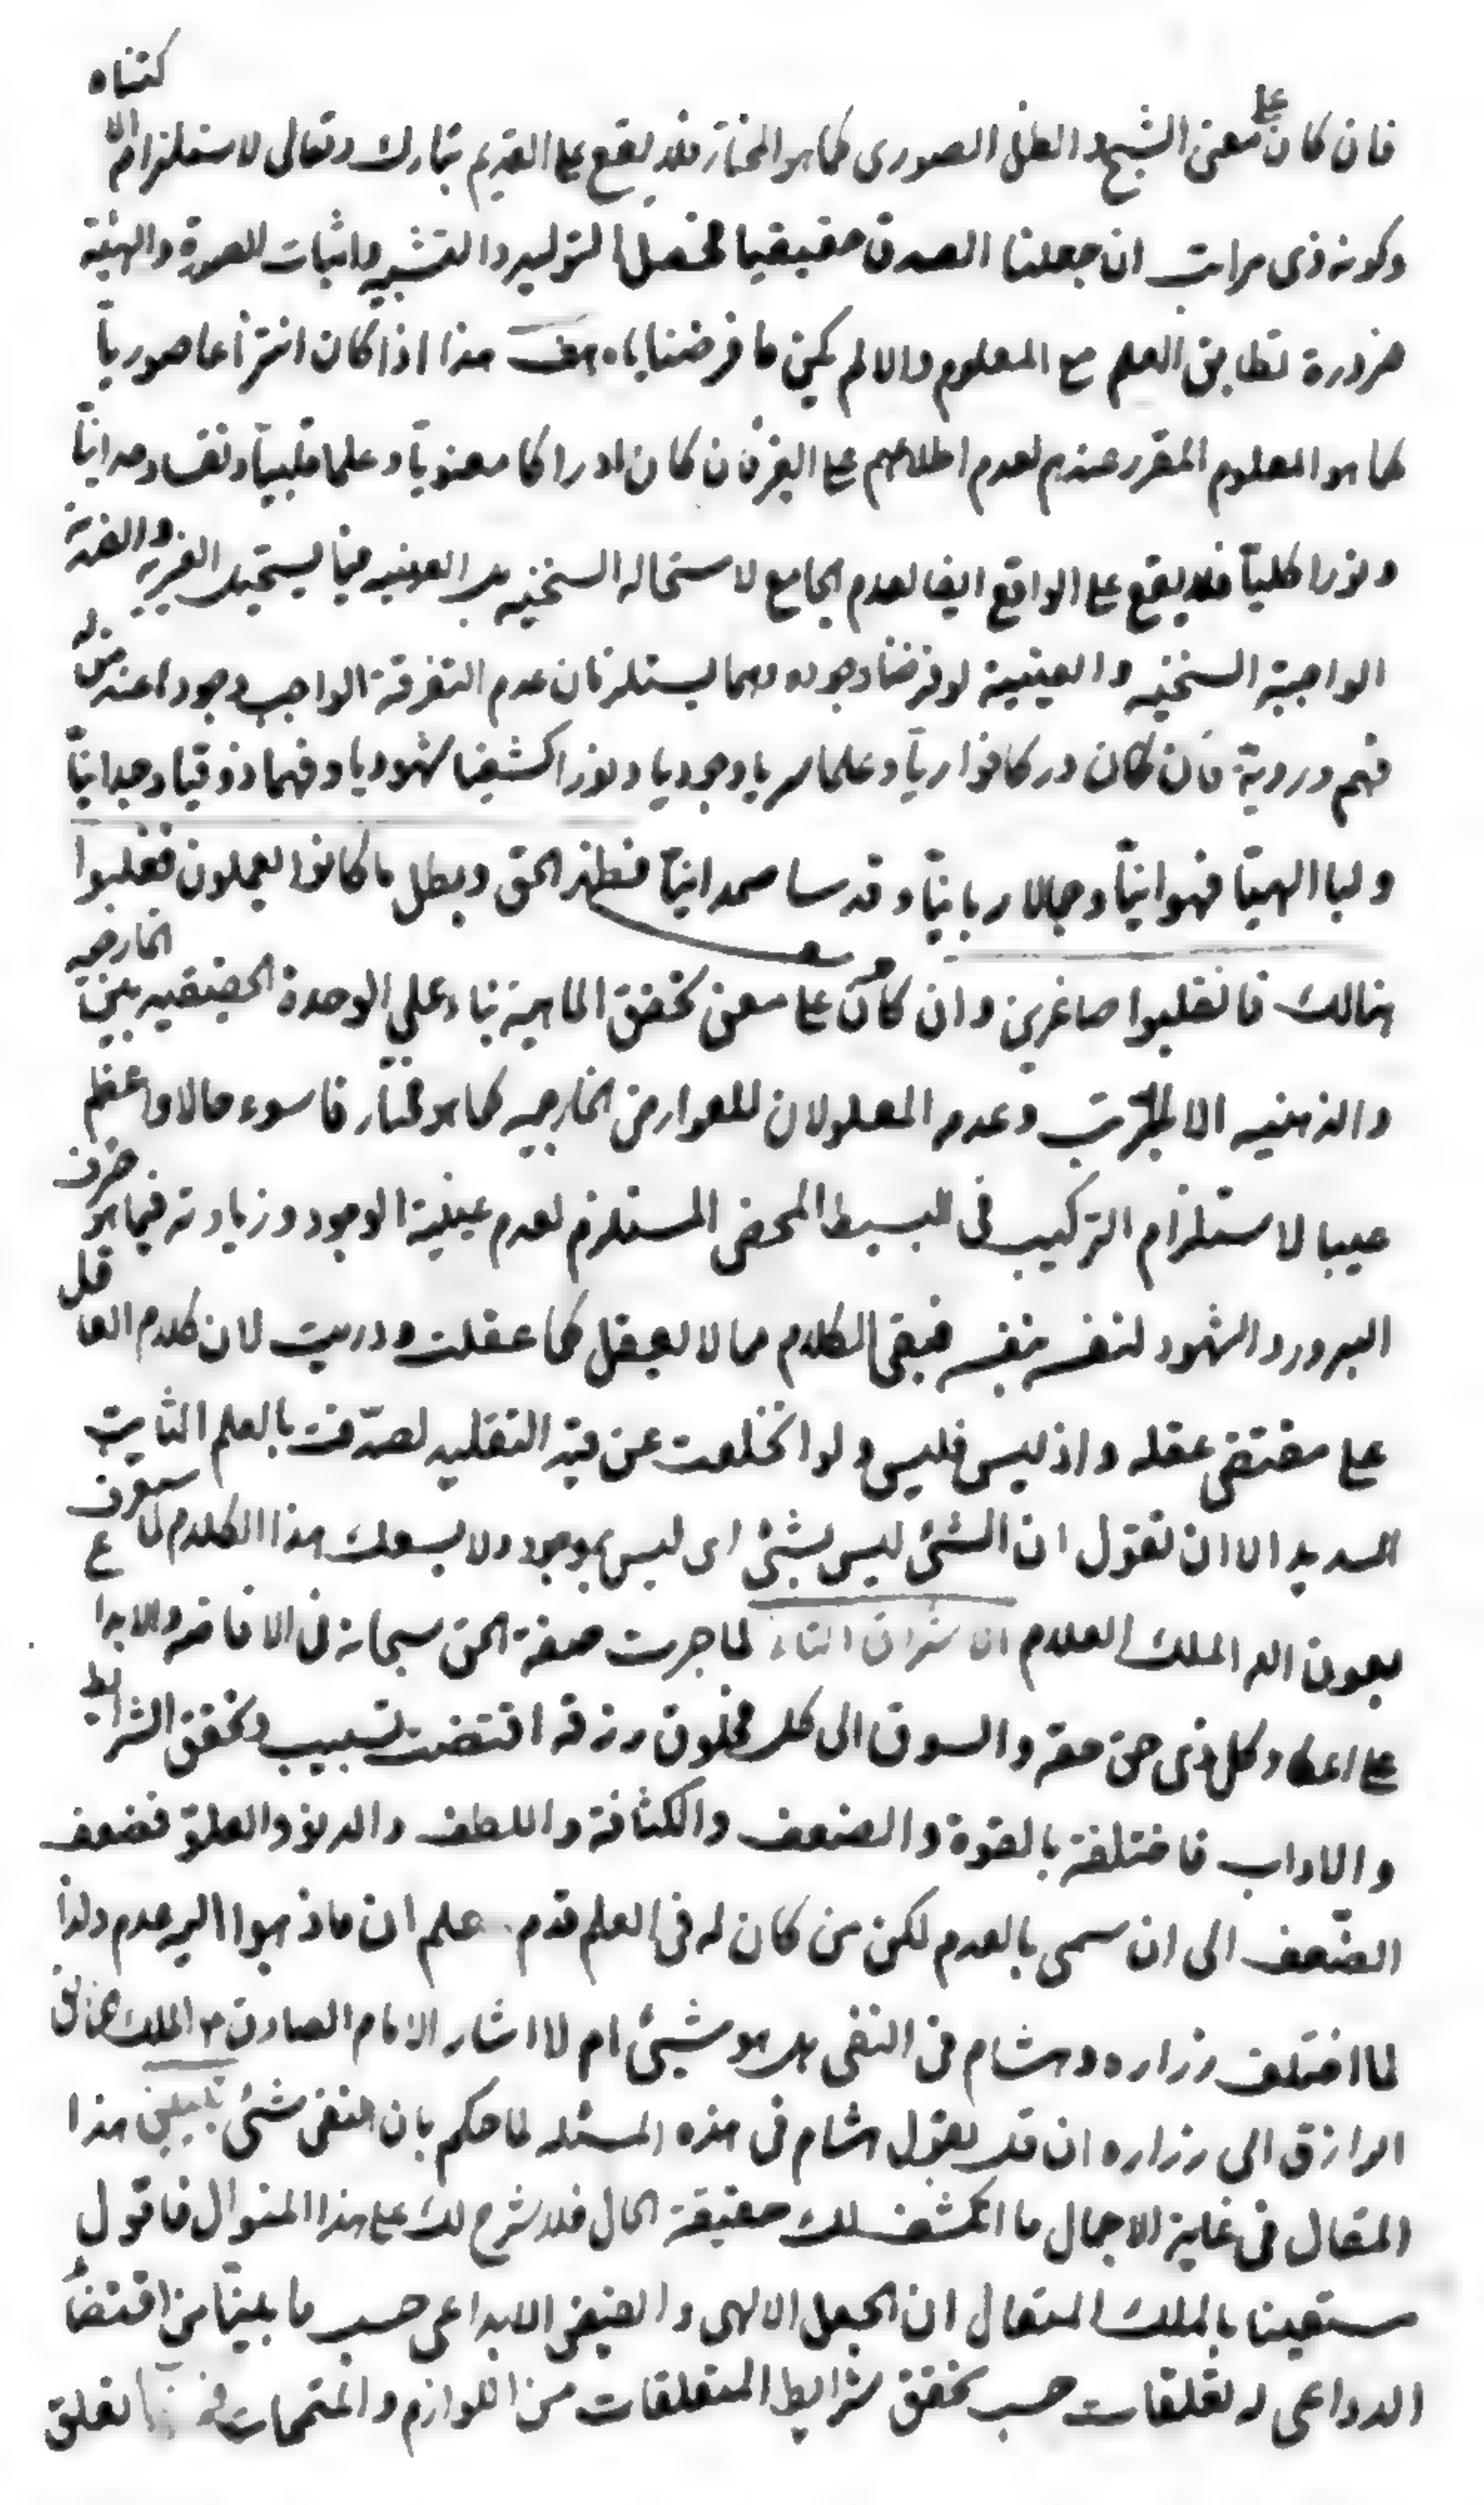 فان كان على معنى الشبح والظل الصورى كما هو المختار فلا يقع على القديم تبارك وتعالى لاستلزام الاكتناه
وكونه ذى مراتب ان جعلنا الصدق حقيقيا لحصل التوليد والتشبيه واثبات للصورة والهيئة
ضرورة تطابق العلم مع المعلوم والا لم يكن ما فرضنا اياه هف هذا اذا كان انتزاعا صورياً
كما هو المعلوم المقرر عندهم لعدم اطلاعهم على الغير فان كان ادراكا معنوياً وعلما قلبياً ونفسا وحدانياً
ونورا كلياً فلا يقع على الواقع ايضا لعدم الجامع لاستحالة السنخية بل العينية فيما يستحيل الغيرية والضدية
الواجبة السنخية والعينية لو فرضنا وجوده وهما يستلزمان عدم التفرقة الواجب وجودا عند من له
فهم وروية فان كان دركا فؤارياً وعلما سريا وجوديا ونورا كشفيا شهوديا وفهما ذوقيا وجدانياً
ولبا الهيّا فهوانيّاً وجمالا ربانيّاً وقدسا صمدانيّاً فظهر الحق وبطل ما كانوا يعملون فغلبوا
هنالك فانقلبوا صاغرين وان كان على معنى تحقق الماهية بناء على الوحدة الحقيقيه بين الخارجيه
والذهنيه الا الترتب وعدم المعلولان للعوارض الخارجيه كما هو المختار فاسوء حالا واعظم
عيبا لاستلزام التركيب فى البسيط المحض المستلزم لعدم عينية الوجود وزيادته فيما هو صرف
البروز والشهود لنفسه بنفسه فبقى الكلام مما لا يعقل كما عقلت ودريت لان كلام العاقل
على مقتضى عقله واذ ليس فليس ولو انخلعت عن قيد التقليد لصدّقت بالعلم الثابت
السديد الا ان نقول ان الشئ ليس بشئ اى ليس بموجود ولا يسعك هذا الكلام لما سيقرع
بعون الله الملك العلام ان شاء لما جرت صفة الحق سبحانه فى الافاضه والابداع
على اعطاء كل ذى حق حقه والسوق الى كل مخلوق رزقه اقتضت تسبيب وتحقق الشرايط
والاداب فاختلفت بالقوة والضعف والكثافة واللطف والدنو والعلو فضعف
الضّعف الى ان سمى بالعدم لكن من كان له فى العلم قدم علم ان ما ذهبوا اليه عدم ولذا
لما اختلف زراره وهشام فى النفى هل هو شيئ ام لا اشار الامام الصادق ع الملك الخالق
الرازق الى زراره ان قل بقول هشام فى هذه المسئله لما حكم بان النفى شئ هذا
المقال فى غاية الاجمال ما انكشف لك حقيقة الحال فلا شرح لك على هذا المنوال فاقول
مستعينا بالملك المتعال ان الجعل الالهى والفيض الابداعى حسب ما بينّا من اقتضاء
الدواعى له تعلقات حسب تحقق شرايط المتعلقات من اللوازم والمتممات تعلق